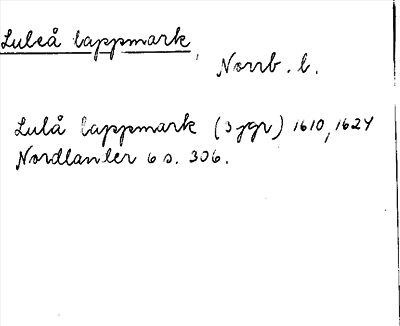 Luleå lappmark, Norrb. l.
Lulå lappmark (3 ggr) 1610, 1624
Nordlander 6 s. 306.